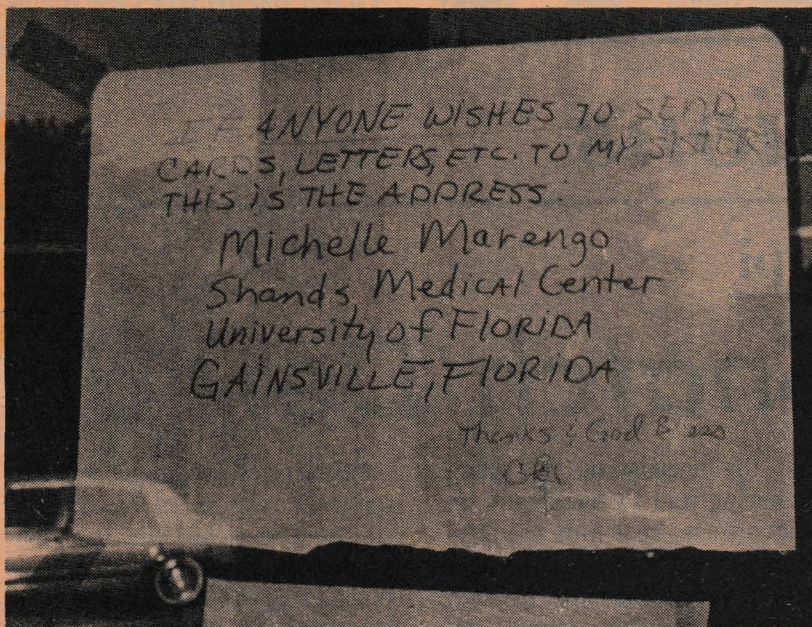 IF ANYONE WISHES TO SEND
CARDS, LETTERS, ETC. TO MY SISTER
THIS IS THE ADDRESS:
Michelle Marengo
Shands Medical Center
University of FLORIDA
GAINSVILLE, FLORIDA
Thanks & God B